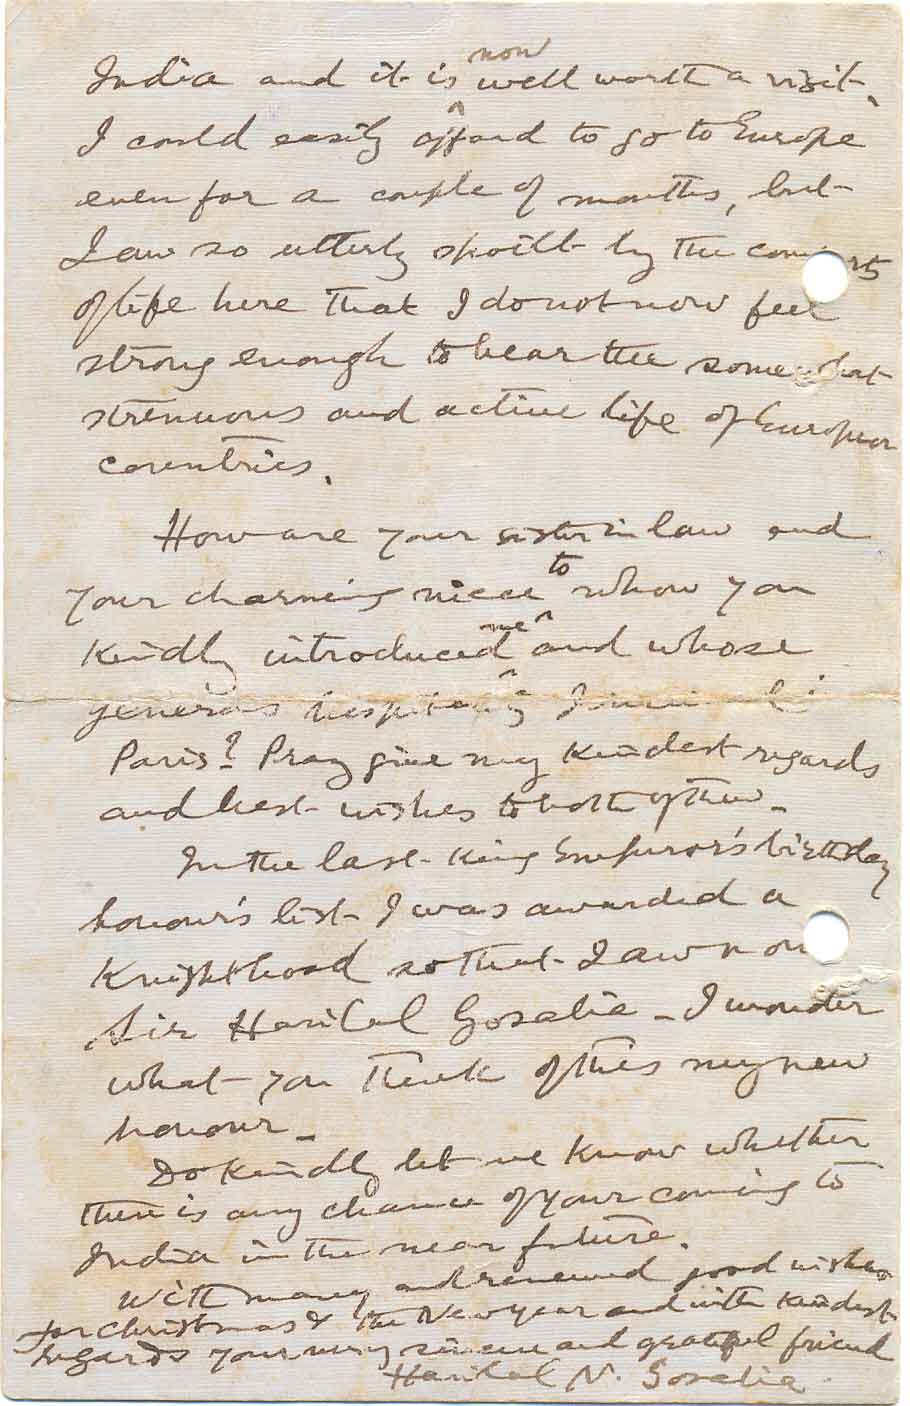 India and it is now well worth a visit.
I could easily afford to go to Europe
even for a couple of months, but
I am so utterly spoilt by the comforts
of life here that I do not now feel
strong enough to bear the somewhat
strenuous and active life of European
countries.
How are your sister in law and
your charming niece to whom you
kindly introduced me and whose
generous hospitality in
Paris? Pray give my kindest regards
and best wishes to both of them.
In the last King Emperor's birthday
honour's list I was awarded a
Knighthood so that I am now
Sir Harilal Gosalia - I wonder
what you think of this my new
honour -
Do kindly let me know whether
there is any chance of your coming to
India in the near future.
With many and renewed good wishes
for Christmas & the New year and with kindest
regards your very sincere and grateful friend
Harilal N. Gosalia